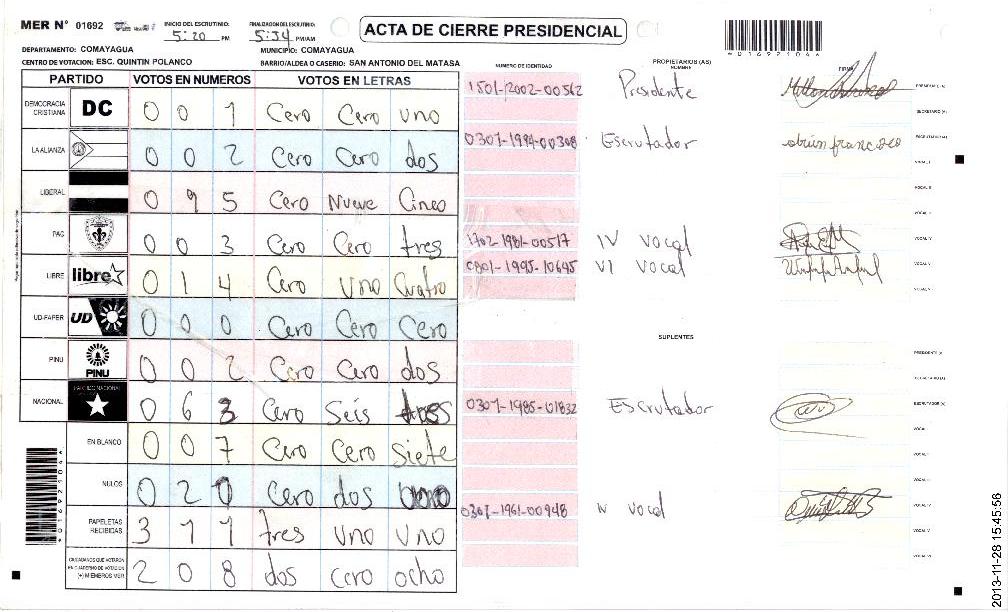 MER N° 01692
INICIO DEL ESCRUTINIO: 5:20 PM
FINALIZACION DEL ESCRUTINIO: 5:34 PM/AM
ACTA DE CIERRE PRESIDENCIAL
DEPARTAMENTO: COMAYAGUA
MUNICIPIO: COMAYAGUA
CENTRO DE VOTACION: ESC. QUINTIN POLANCO
BARRIO/ALDEA O CASERIO: SAN ANTONIO DEL MATASA
PARTIDO VOTOS EN NUMEROS VOTOS EN LETRAS
DEMOCRACIA CRISTIANA DC 0 0 1 Cero Cero uno
LA ALIANZA 0 0 2 Cero Cero dos
LIBERAL 0 9 5 Cero Nueve Cinco
PAC 0 0 3 Cero Cero tres
LIBRE libre 0 1 4 Cero uno Cuatro
UD-FAPER UD 0 0 0 Cero Cero Cero
PINU PINU 0 0 2 Cero Cero dos
NACIONAL PARTIDO NACIONAL 0 6 3 Cero Seis tres
EN BLANCO 0 0 7 Cero Cero Siete
NULOS 0 2 Cero dos
PAPELETAS RECIBIDAS 3 1 1 tres uno uno
CIUDADANOS QUE VOTARON EN CUADERNO DE VOTACION (+) MIEMBROS MER 2 0 8 dos cero ocho
*016921044*
NUMERO DE IDENTIDAD PROPIETARIOS (AS) NOMBRE FIRMA
1501-2002-00562 Presidente PRESIDENTE (A)
SECRETARIO (A)
0307-1994-00308 Escrutador ESCRUTADOR (A)
VOCAL I
VOCAL II
VOCAL III
1702-1981-00517 IV Vocal VOCAL IV
0801-1995-10695 VI Vocal VOCAL V
VOCAL VI
SUPLENTES
PRESIDENTE (A)
SECRETARIO (A)
0307-1985-01832 Escrutador ESCRUTADOR (A)
VOCAL I
VOCAL II
VOCAL III
0307-1961-00948 IV Vocal VOCAL IV
VOCAL V
VOCAL VI
*016921044*
2013-11-28 15:45:56